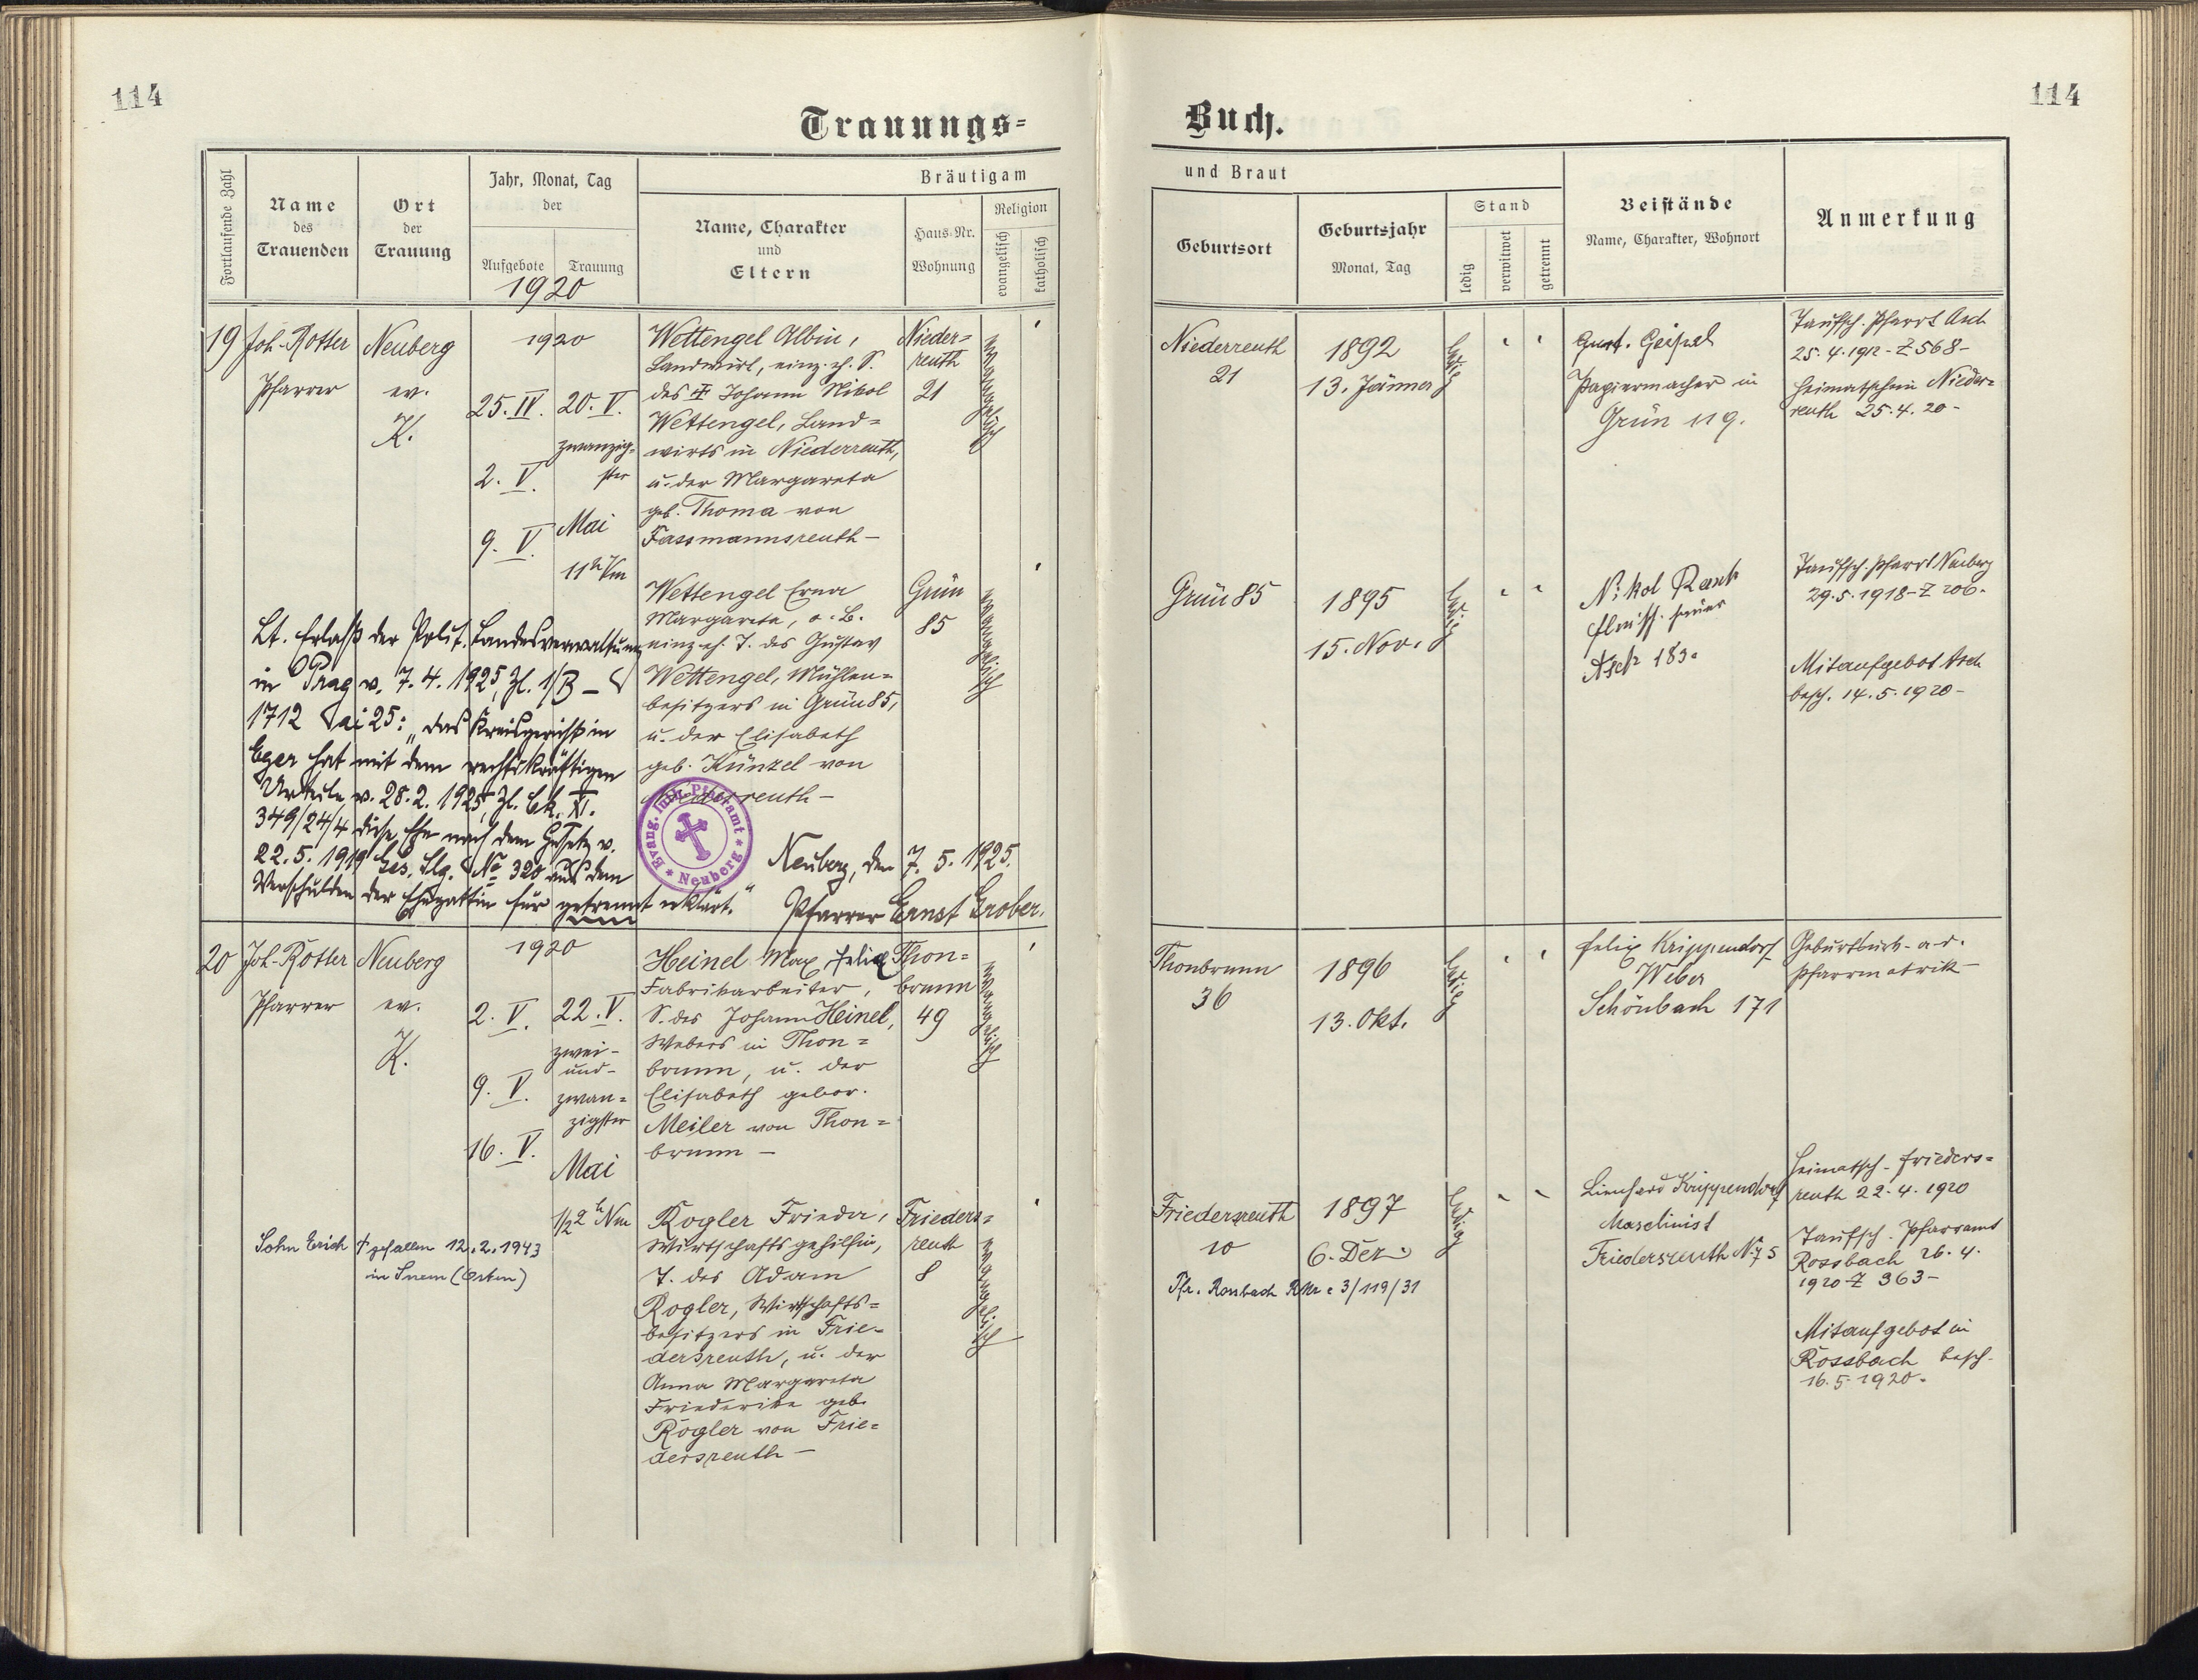 114
114
Trauungs=
Buch.
Fortlaufende Zahl
Name
des
Trauenden
Ort
der
Trauung
Jahr, Monat, Tag
der
Aufgebote
Trauung
1920
Bräutigam
Name, Charakter
und
Eltern
Haus-Nr.
Wohnung
Religion
evangelisch
katholisch
und Braut
Geburtsort
Geburtsjahr
Monat, Tag
Stand
ledig
verwitwet
getrennt
Beistände
Name, Charakter, Wohnort
Anmerkung
19
Joh. Rotter
Pfarrer
Neuberg
ev.
K.
1920
25. IV.
2. V.
9. V.
20. V.
zwanzig-
ster
Mai
11 h Vm
Wettengel Albin,
Landwirt, einz. eh. S.
des Johann Nikol
Wettengel, Land=
wirts in Niederreuth,
u. der Margareta
geb. Thoma von
Fassmannsreuth –
Nieder=
reuth
21
evangelisch
Niederreuth
21
1892
13. Jänner
ledig
Gust. Geipel
Papiermacher in
Grün 119.
Taufsch. Pfarrt Asch
25. 4. 1912 - Z 568 -
Heimatschein Nieder=
reuth 25. 4. 20 -
Wettengel Erna
Margareta, o. B.
einz. eh. T. des Gustav
Wettengel, Mühlen=
besitzers in Grün 85,
u. der Elisabeth
geb. Künzel von
reuth –
Grün
85
evangelisch
Grün 85
1895
15. Nov.
ledig
Nikol
Asch 183.
Taufsch. Pfarrt Neuberg
29. 5. 1918 - Z 206.
Mitaufgebot Asch
besch. 14. 5. 1920 -
Lt. Erlaß der Polit. Landesverwaltung
in Prag v. 7. 4. 1925, Zl. 1/B –
1712 ai 25: „das Kreisgericht in
Eger hat mit dem rechtskräftigen
Urteile v. 28. 2. 1925, Zl. Ck. XI.
349/24/4 diese Ehe nach dem Gesetz v.
22. 5. 1919 Ges. Slg. No 320 aus dem
Verschulden der Ehegattin für getrennt erklärt.“
Evang. luth. Pfarramt
* Neuberg *
Neuberg, den 7. 5. 1925.
Pfarrer Ernst Grober.
20
Joh. Rotter
Pfarrer
Neuberg
ev.
K.
1920
2. V.
9. V.
16. V.
22. V.
zwei-
und-
zwan=
zigster
Mai
1/2 2 h Nm
Heinel Max Felix
Fabrikarbeiter,
S. des Johann Heinel,
Webers in Thon=
brunn, u. der
Elisabeth gebor.
Meiler von Thon=
brunn –
Thon=
brunn
49
evangelisch
Thonbrunn
36
1896
13. Okt.
ledig
Felix Krippendorf
Weber
Schönbach 171
Geburtbuch a. d.
Pfarrmatrik
Sohn Erich + gefallen 12. 2. 1943
in (Osten)
Rogler Frieda,
Wirtschaftsgehilfin,
T. des Adam
Rogler, Wirtschafts=
besitzers in Frie=
dersreuth, u. der
Anna Margareta
Friederike geb.
Rogler von Frie=
dersreuth –
Frieders=
reuth
8
evangelisch
Friedersreuth
10
Pfr. Rossbach RNr. 3/119/31
1897
6. Dez.
ledig
Lienhard Krippendorf
Maschinist
Friedersreuth Nr. 75
Heimatsch. Frieders=
reuth 22. 4. 1920
Taufsch. Pfarramt
Rossbach 26. 4.
1920 Z 363 –
Mitaufgebot in
Rossbach besch.
16. 5. 1920.